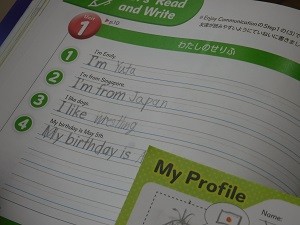 's Read
and Write
Unit
1
p.10
Enjoy CommunicationのStep 1の
わたしのせりふ
1
I'm Emily.
I'm Yuta
2
I'm from Singapore.
I'm from Japan
3
I like dogs.
I like wrestling
4
My birthday is May 5th.
My birthday is
My Profile
Name: